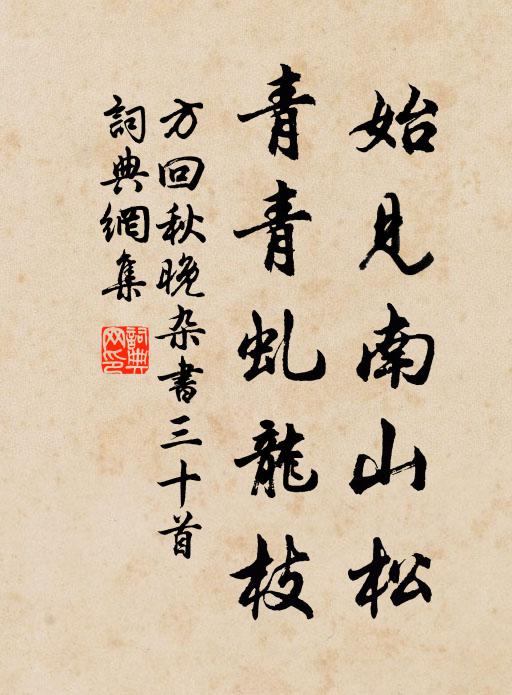 始见南山松
青青虬龍枝
方回秋晚杂書三十首
詞典網集
詞典網印